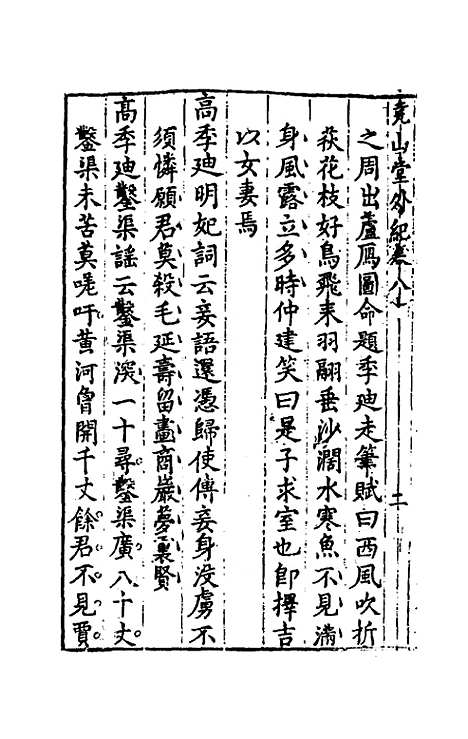 堯山堂外紀卷八十
二
之周出蘆鴈圖命題季迪走筆賦曰西風吹折
荻花枝好鳥飛來羽翮垂沙濶水寒魚不見滿
身風露立多時仲建笑曰是子求室也卽擇吉
以女妻焉
高季迪明妃詞云妾語還憑歸使傳妾身没虜不
須憐願君莫殺毛延壽留畫商巖夢裏賢
高季迪鑿渠謠云鑿渠深一十尋鑿渠廣八十丈
鑿渠未苦莫嗟吁黄河曾開千丈餘君不見賈